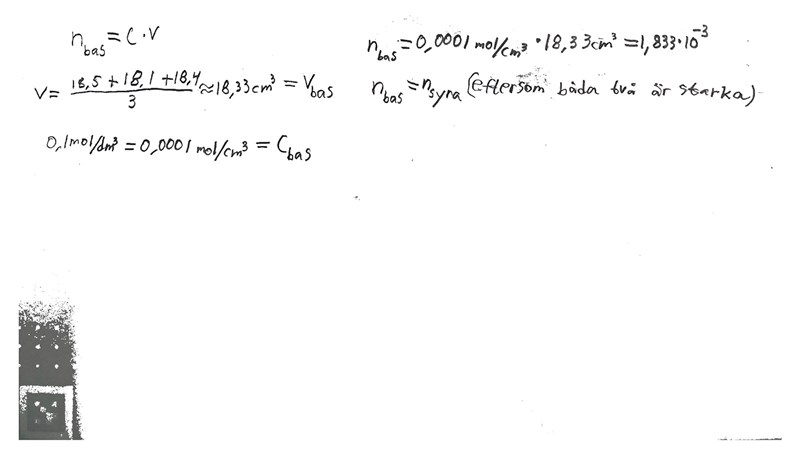 n_bas = C · V
V = (18,5 + 18,1 + 18,4)/3 ≈ 18,33 cm³ = V_bas
0,1 mol/dm³ = 0,0001 mol/cm³ = C_bas
n_bas = 0,0001 mol/cm³ · 18,33 cm³ = 1,833 · 10⁻³
n_bas = n_syra (eftersom båda två är starka)